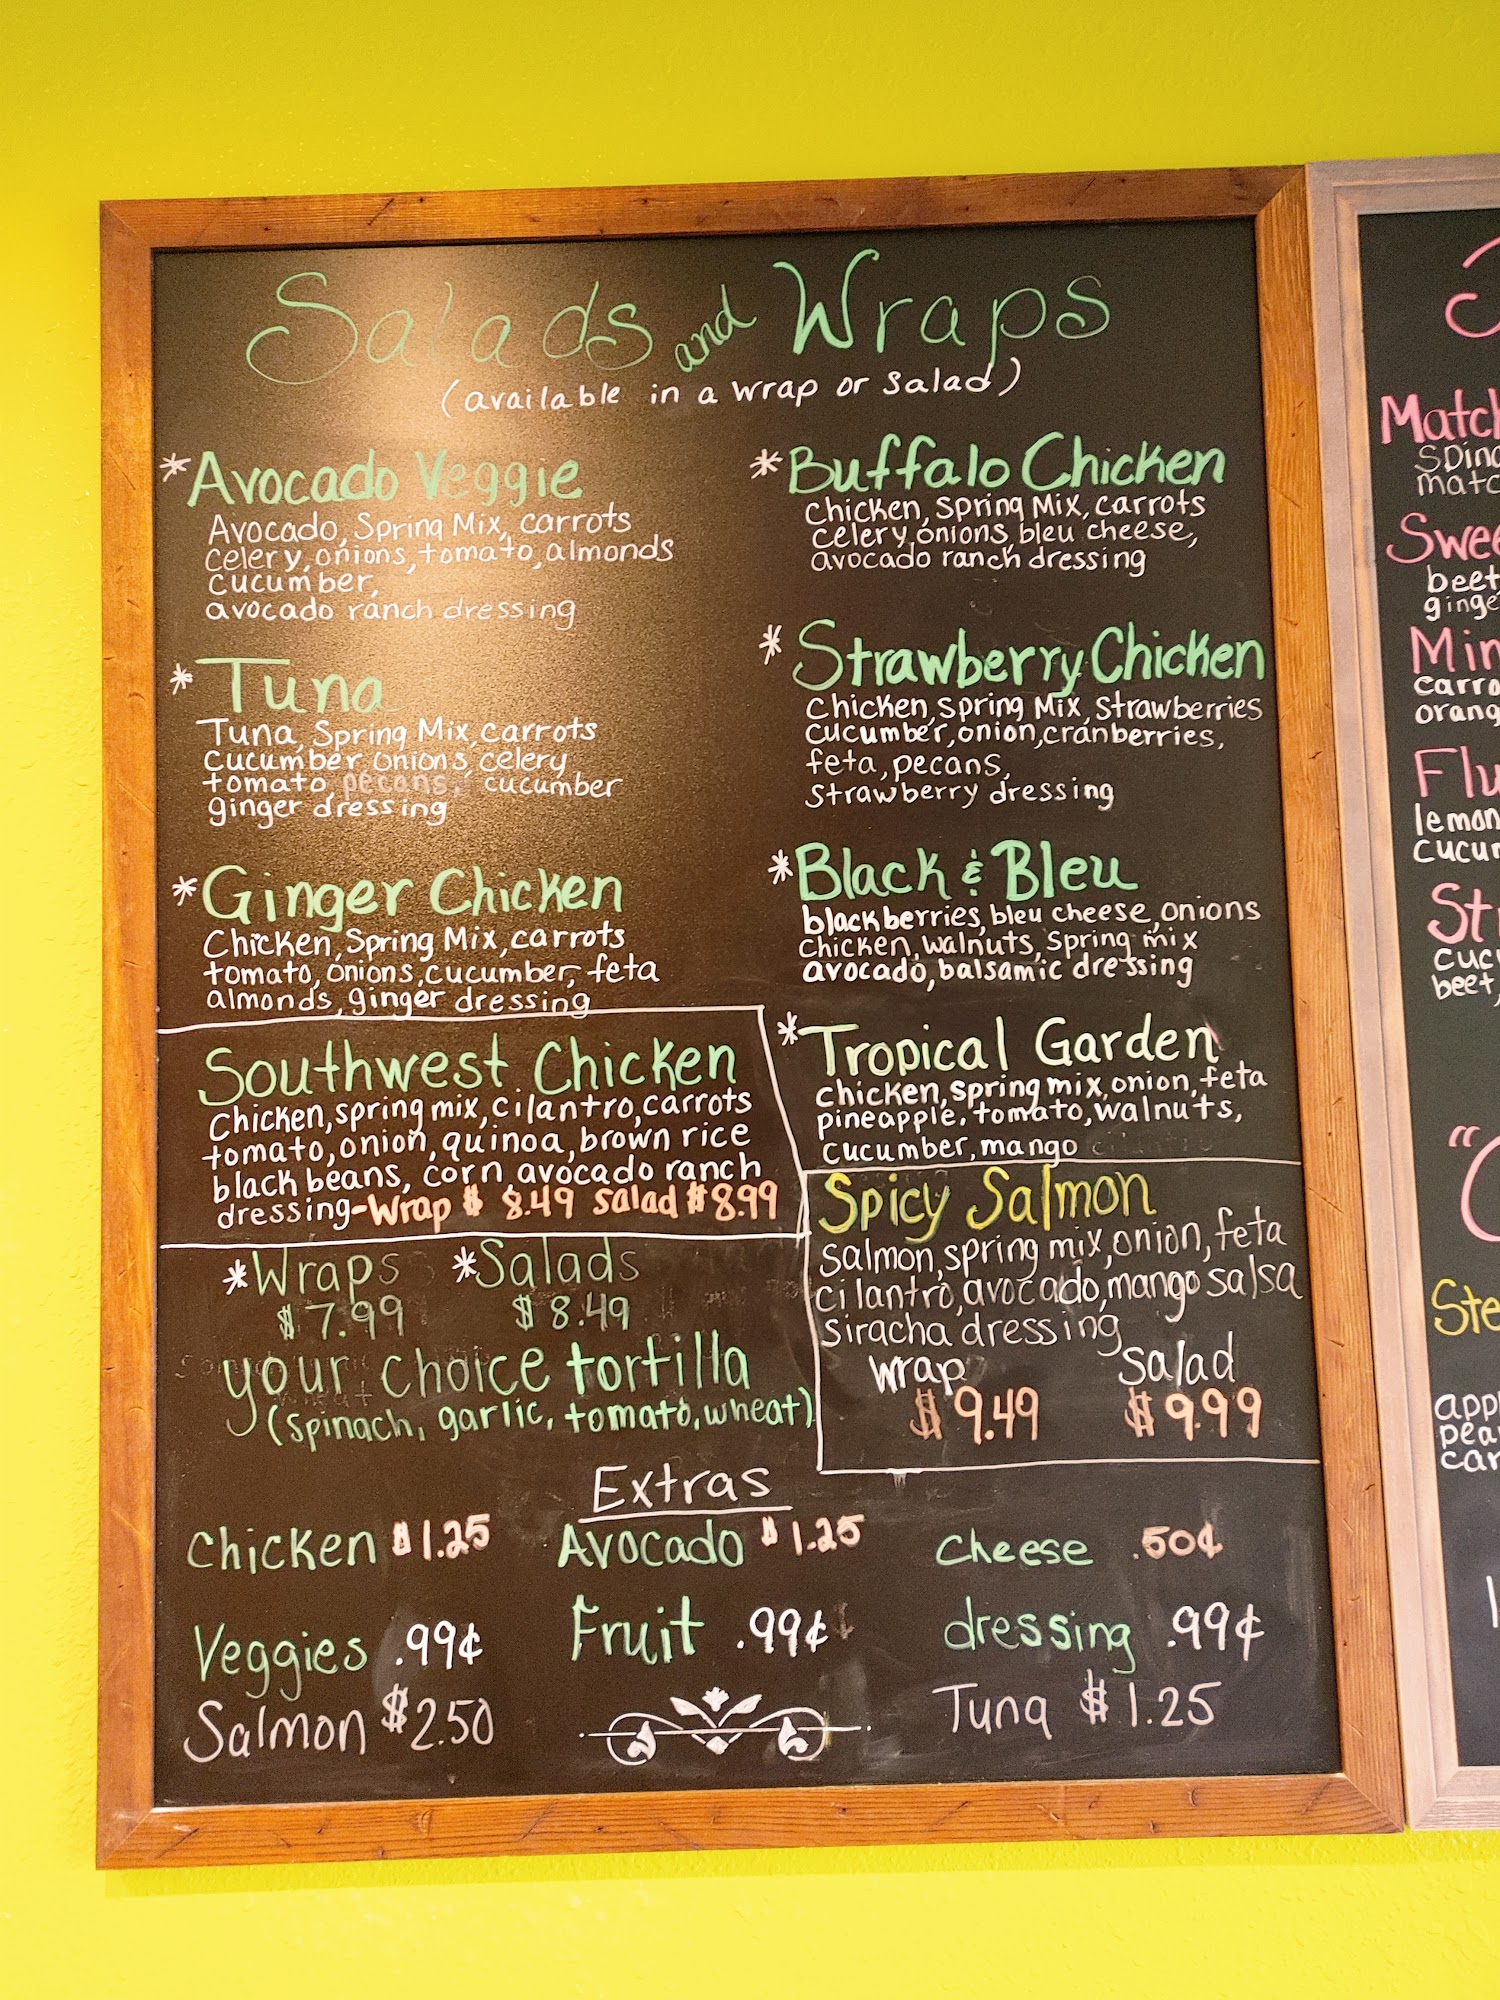 Salads and Wraps
(available in a wrap or salad)
*Avocado Veggie
Avocado, Spring Mix, carrots
celery, onions, tomato, almonds
cucumber,
avocado ranch dressing
* Tuna
Tuna, Spring Mix, carrots
cucumber onions, celery
tomato, pecans, cucumber
ginger dressing
*Ginger Chicken
Chicken, Spring Mix, carrots
tomato, onions, cucumber, feta
almonds, ginger dressing
Southwest Chicken
chicken, spring mix, cilantro, carrots
tomato, onion, quinoa, brown rice
black beans, corn, avocado ranch
dressing-Wrap $ 8.49 Salad $8.99
*Wraps *Salads
$7.99 $8.49
your choice tortilla
(spinach, garlic, tomato, wheat)
*Buffalo Chicken
Chicken, Spring Mix, carrots
celery, onions, bleu cheese,
avocado ranch dressing
* Strawberry Chicken
Chicken, Spring Mix, Strawberries
cucumber, onion, cranberries,
feta, pecans,
Strawberry dressing
*Black & Bleu
blackberries, bleu cheese, onions
chicken, walnuts, spring mix
avocado, balsamic dressing
*Tropical Garden
chicken, spring mix, onion, feta
pineapple, tomato, walnuts,
cucumber, mango
Spicy Salmon
salmon, spring mix, onion, feta
cilantro, avocado, mango salsa
siracha dressing
wrap Salad
$9.49 $9.99
Extras
Chicken $1.25 Avocado $1.25 cheese .50¢
Veggies .99¢ Fruit .99¢ dressing .99¢
Salmon $2.50 Tuna $1.25
beet,
lemon
beet,